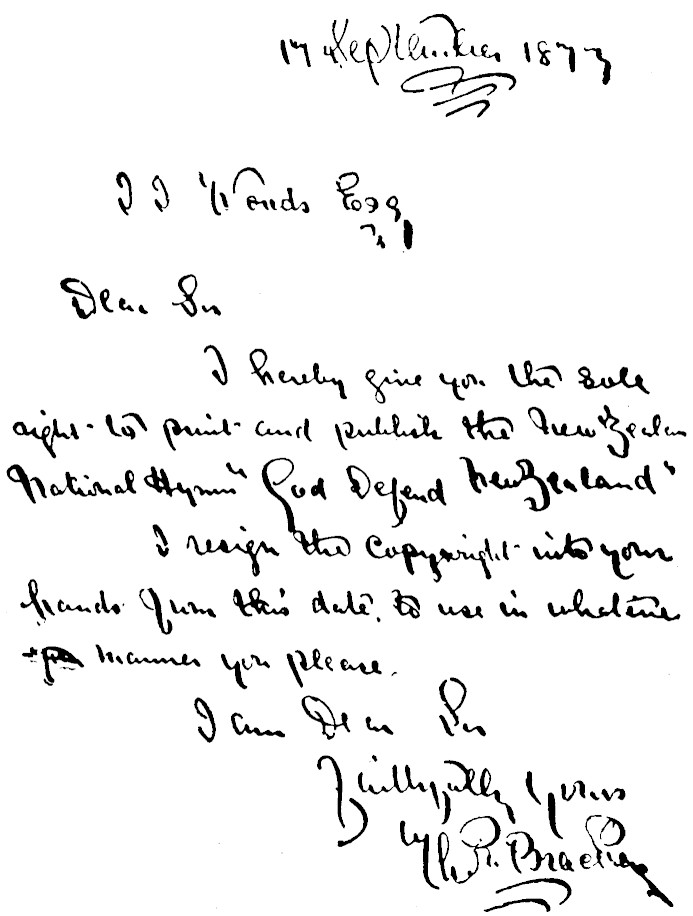 17 September 1877
J J Woods Esq
Dear Sir
I hereby give you the sole
right to print and publish the New Zealan
National Hymn "God Defend New Zealand"
I resign the copyright into your
hands from this date, to use in whatever
manner you please.
I am Dear Sir
Faithfully Yours
Bracken